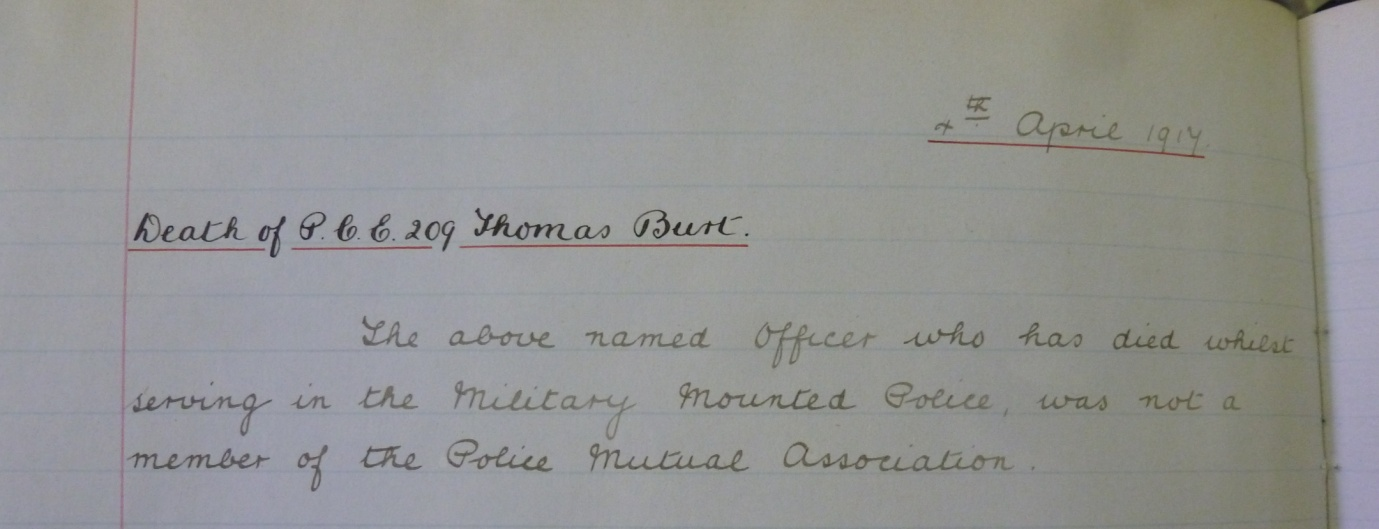 4th April 1917.
Death of P.C. E. 209 Thomas Burt.
The above named Officer who has died whilst
serving in the Military Mounted Police, was not a
member of the Police Mutual Association.